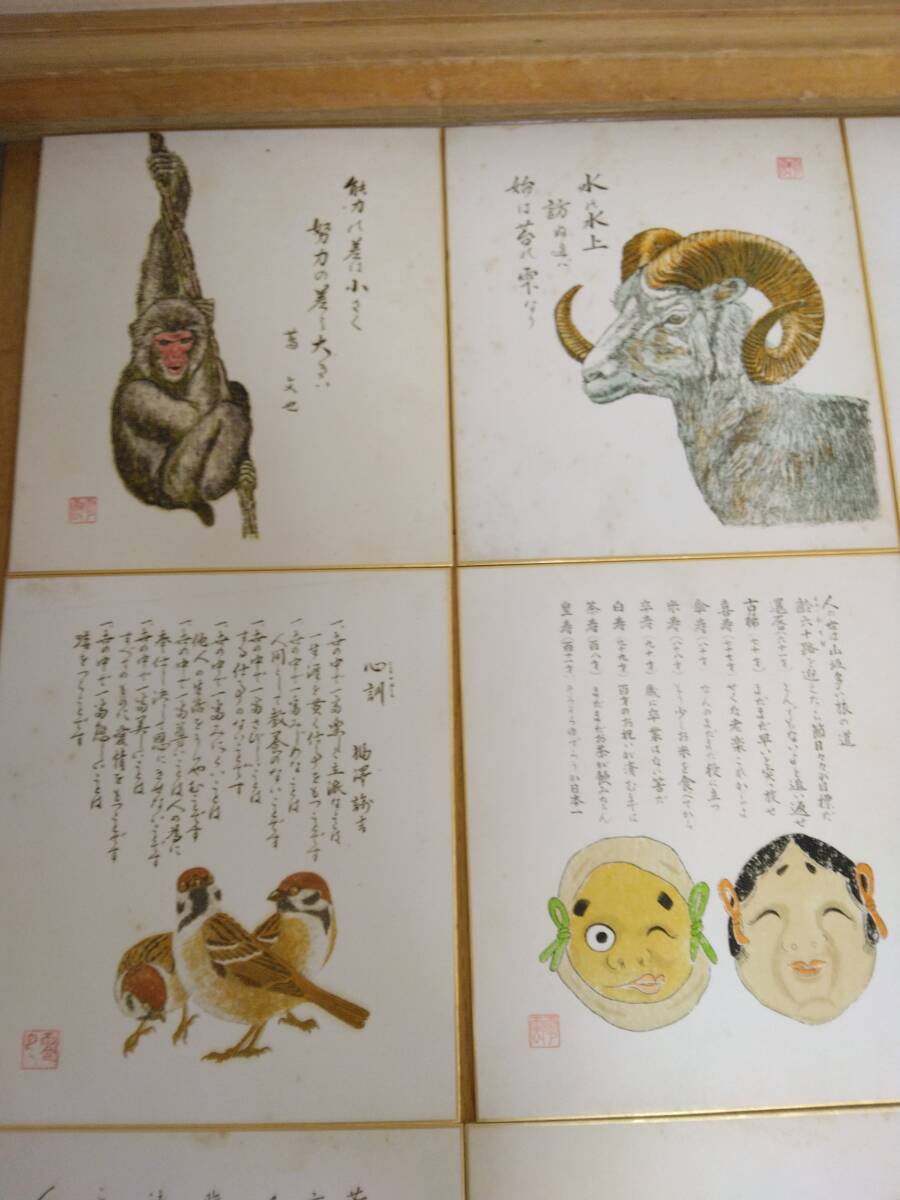 能力の差は小さく
努力の差は大きい
水の水上
訪ぬれば
始は苔の雫なり
心訓
福澤諭吉
一、世の中で一番楽しく立派なことは
一生涯を貫く仕事をもつことです
一、世の中で一番みじめなことは
人間として教養のないことです
一、世の中で一番さびしいことは
する仕事のないことです
一、世の中で一番みにくいことは
他人の生活をうらやむことです
一、世の中で一番尊いことは人の為に
奉仕し決して恩にきせないことです
一、世の中で一番美しいことは
すべてのものに愛情をもつことです
一、世の中で一番悲しいことは
嘘をつくことです
人の世は山坂多い旅の道
齢六十路を迎えたら節目々々が目標だ
還暦(六十一才) とんでもないよと追い返せ
古稀(七十才) まだまだ早いと突っ放せ
喜寿(七十七才) せくな老楽これからよ
傘寿(八十才) なんのまだまだ役に立つ
米寿(八十八才) もう少しお米を食べてから
卒寿(九十才) 歳に卒業はない筈だ
白寿(九十九才) 百才のお祝いが済むまでは
茶寿(百八才) まだまだお茶が飲みたらん
皇寿(百十一才) そろそろゆずろうか日本一